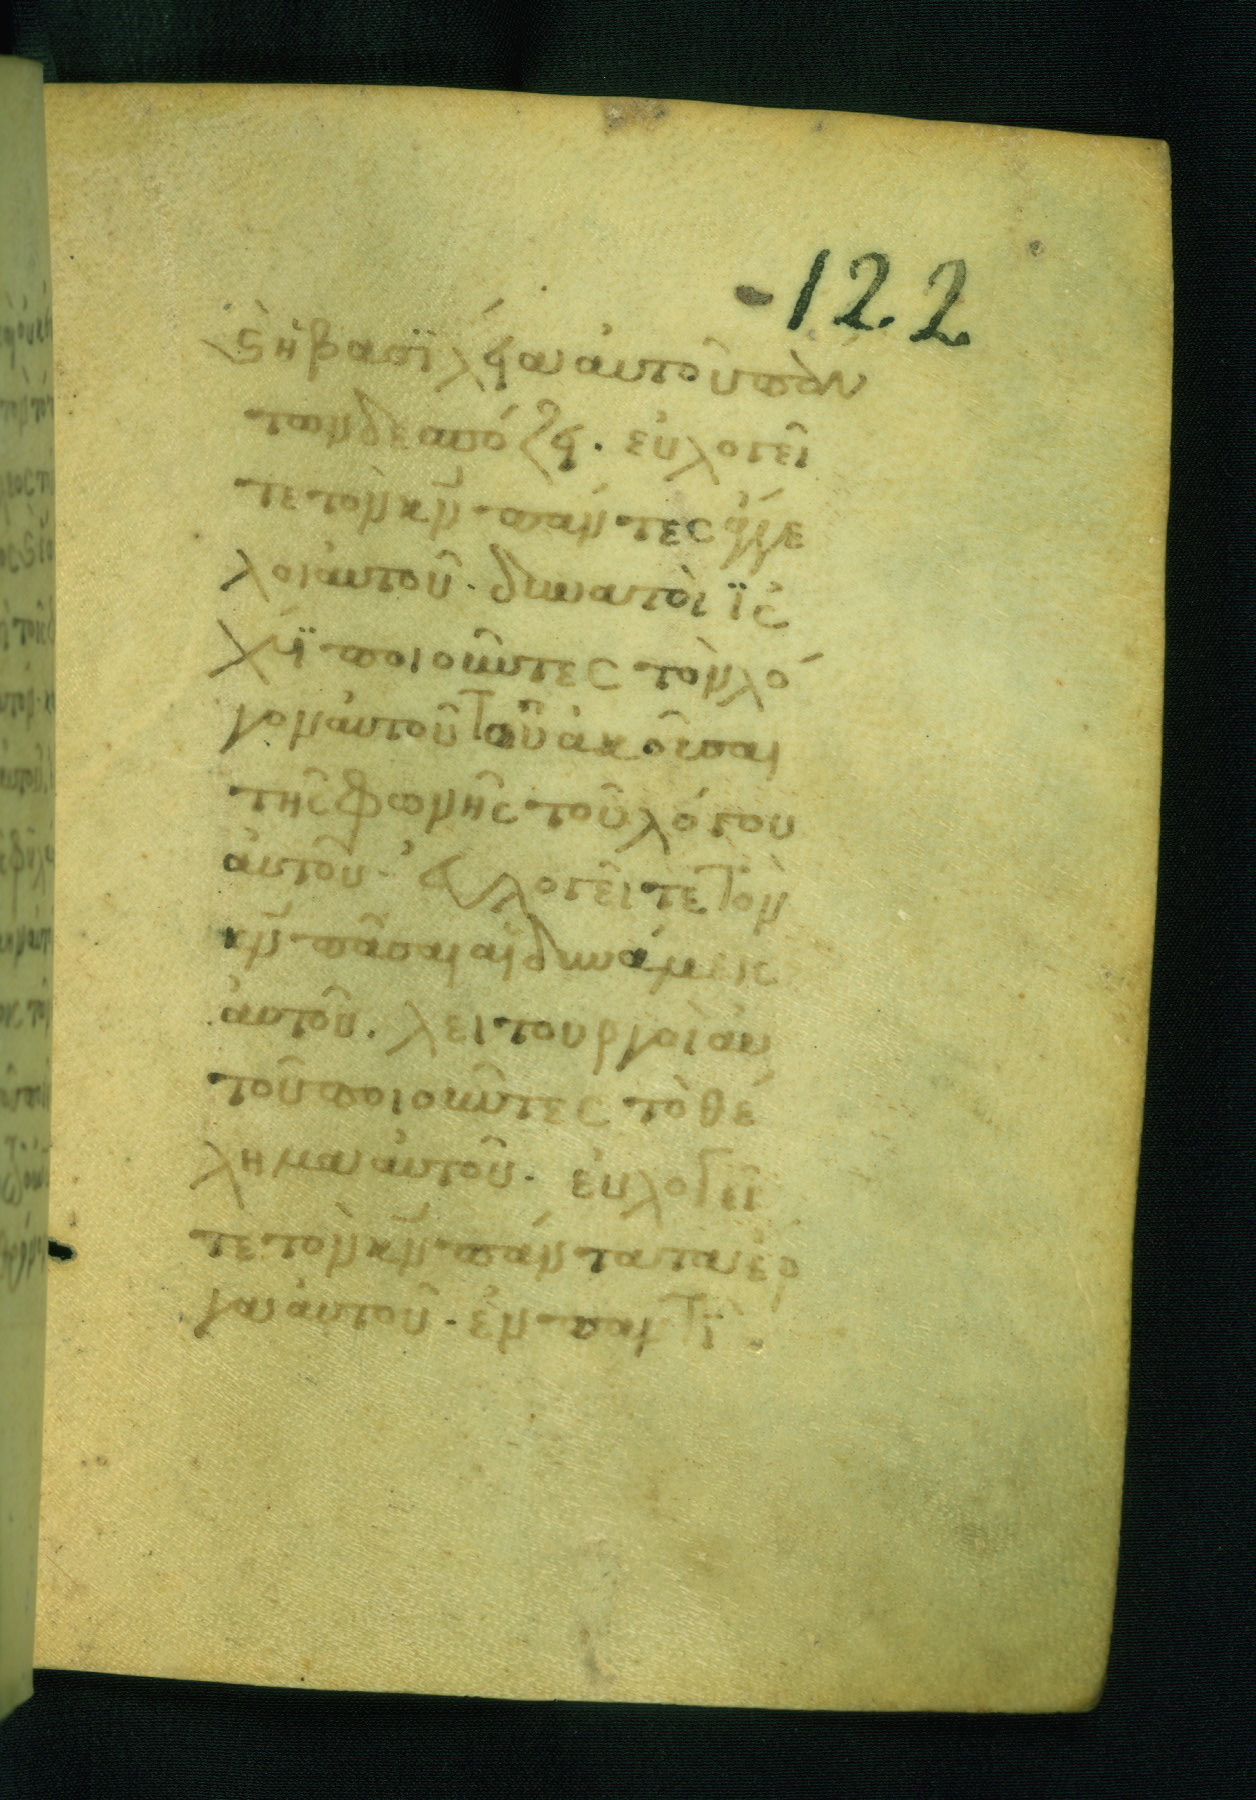 -122
ϛ ἡ βασϊλεία αὐτοῦ πάν
των δεσπόζει· εὐλογεῖ
τε τὸν κ̅ν̅ πάντες ἄγγε
λοι αὐτοῦ· δυνατοὶ ἰσ
χύϊ ποιοῦντες τὸν λό
γον αὐτοῦ τοῦ ἀκοῦσαι
τῆς φωνῆς τοῦ λόγου
αὐτοῦ· εὐλογεῖτε τὸν
κ̅ν̅ πᾶσαι αἱ δυνάμεις
αὐτοῦ· λειτουργοὶ αὐ
τοῦ ποιοῦντες τὸ θέ
λημα αὐτοῦ· εὐλογεῖ
τε τὸν κ̅ν̅ πάντα τὰ ἔρ
γα αὐτοῦ· ἐν παντὶ